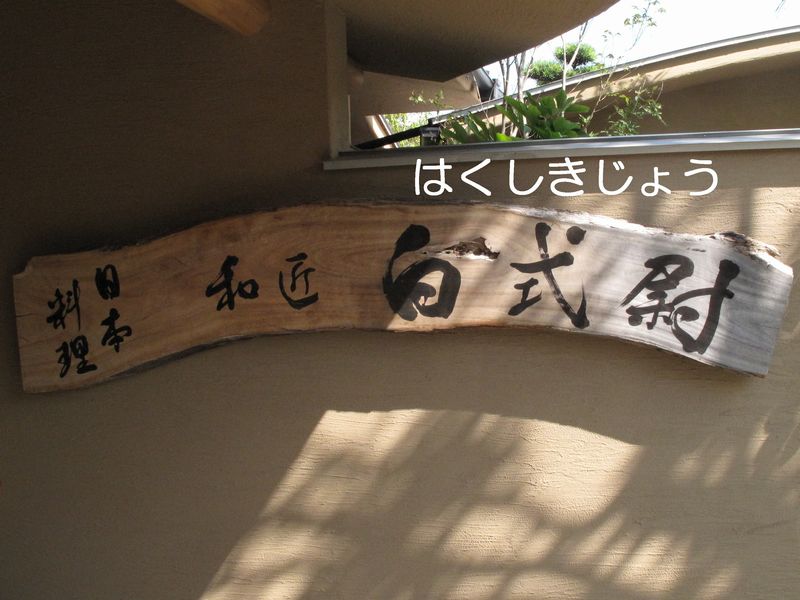 はくしきじょう
日本
料理
和匠 白式尉